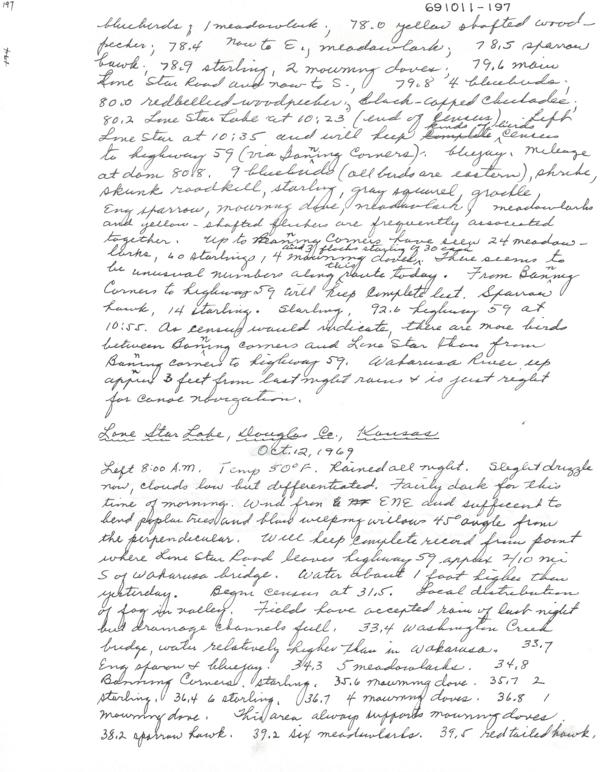 197
691011-197
bluebirds; 1 meadowlark; 78.0 yellow shafted wood-
pecker; 78.4 Now to E., meadowlark; 78.5 sparrow
hawk; 78.9 starling, 2 mourning doves; 79.6 main
Lone Star Road and now to S., 79.8 4 bluebirds;
80.0 redbellied-woodpecker, black-capped chickadee;
80.2 Lone Star Lake at 10:23 (end of census). Left
Lone Star at 10:35 and will keep complete kinds of birds census
to highway 59 (via Banning Corners). bluejay. Mileage
at dam 80.8. 9 bluebirds (all birds are eastern), shrike,
skunk roadkill, starling, gray squirrel, grackle,
Eng sparrow, mourning dove, meadowlark, meadowlarks
and yellow-shafted flickers are frequently associated
together. Up to Banning Corners have seen 24 meadow-
larks, 60 starlings, and 3 flocks starling of 30 each 4 mourning doves. There seems to
be unusual numbers along this route today. From Banning
Corners to highway 59 will keep complete list. Sparrow
hawk, 14 starling. Starling. 92.6 highway 59 at
10:55. As census would indicate, there are more birds
between Banning corners and Lone Star than from
Banning corners to highway 59. Wakarusa River up
approx 3 feet from last night rains & is just right
for canoe navigation.
Lone Star Lake, Douglas Co., Kansas
Oct. 12, 1969
Left 8:00 A.M. Temp 50°F. Rained all night. Slight drizzle
now, clouds low but differentiated. Fairly dark for this
time of morning. Wind from ENE and sufficent to
bend poplar trees and blow weeping willows 45° angle from
the perpendicular. Will keep complete record from point
where Lone Star Road leaves highway 59 approx 2/10 mi
S of Wakarusa bridge. Water about 1 foot higher than
yesterday. Begin census at 31.5. Local distribution
of fog in valley. Fields have accepted rain of last night
but drainage channels full. 33.4 Washington Creek
bridge, water relatively higher than in Wakarusa. 33.7
Eng sparow & bluejay. 34.3 5 meadowlarks. 34.8
Banning Corners. starling. 35.6 mourning dove. 35.7 2
starling. 36.4 6 starling. 36.7 4 mourning doves. 36.8 1
mourning dove. This area always supports mourning doves.
38.2 sparrow hawk. 39.2 six meadowlarks. 39.5 red tailed hawk.